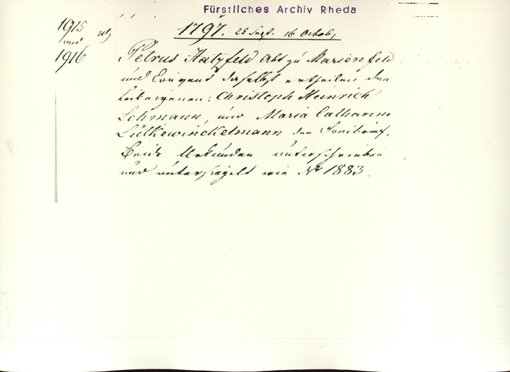 Fürstliches Archiv Rheda
1915
und
1916
1797. 25 Sept. 16 Octob.
Petrus Hatzfeld Abt zu Marienfeld
und Convent daselbst ertheilen den
leibeigenen: Christoph Heinrich
Lehmann, und Maria Catharine
Lütkewinckelmann den Freibrief.
Beide Urkunden unterschrieben
und untersiegelt wie Nº 1883.